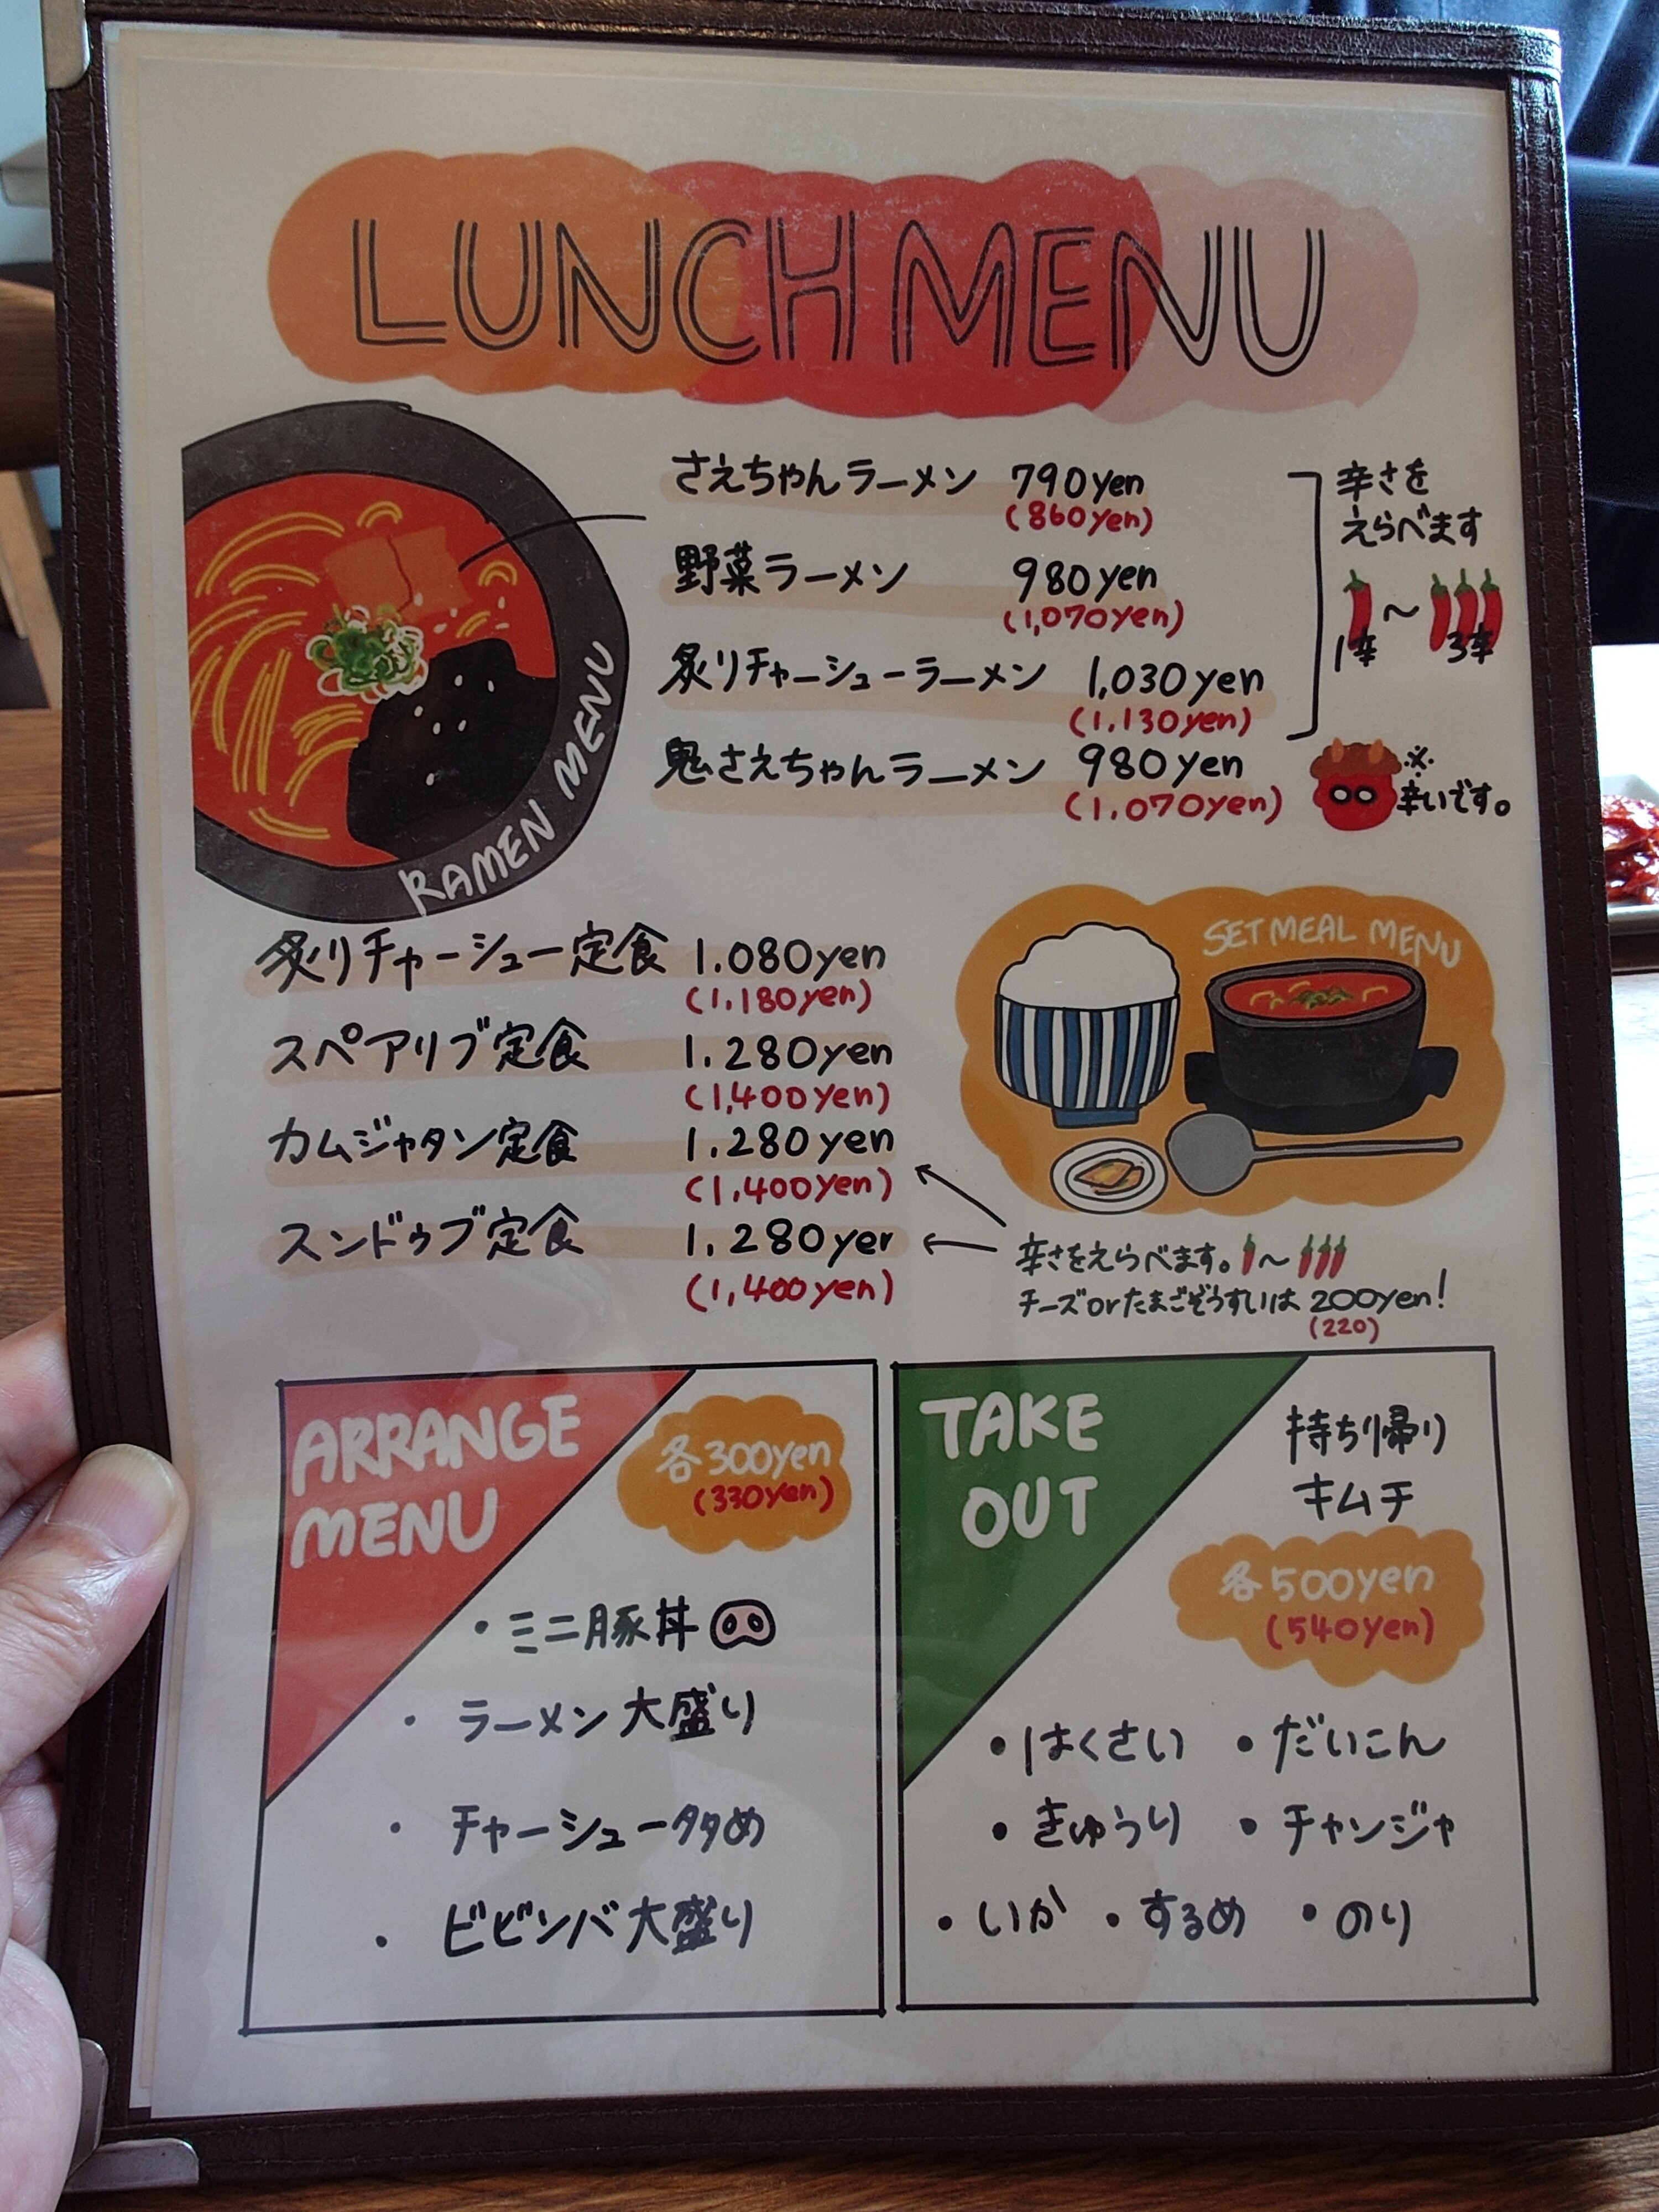 LUNCH MENU
さえちゃんラーメン 790yen
(860yen)
野菜ラーメン 980yen
(1,070yen)
炙りチャーシューラーメン 1,030yen
(1.130yen)
鬼さえちゃんラーメン 980yen
(1.070yen)
辛さを
えらべます
1辛 〜 3辛
※
辛いです。
RAMEN MENU
炙りチャーシュー定食 1.080yen
(1.180yen)
スペアリブ定食 1.280yen
(1,400yen)
カムジャタン定食 1.280yen
(1,400yen)
スンドゥブ定食 1.280yen
(1,400yen)
SET MEAL MENU
辛さをえらべます。 〜
チーズorたまごぞうすいは 200yen!
(220)
ARRANGE
MENU
各300yen
(330yen)
・ミニ豚丼
・ラーメン大盛り
・チャーシュー多め
・ビビンバ大盛り
TAKE
OUT
持ち帰り
キムチ
各500yen
(540yen)
・はくさい ・だいこん
・きゅうり ・チャンジャ
・いか ・するめ ・のり